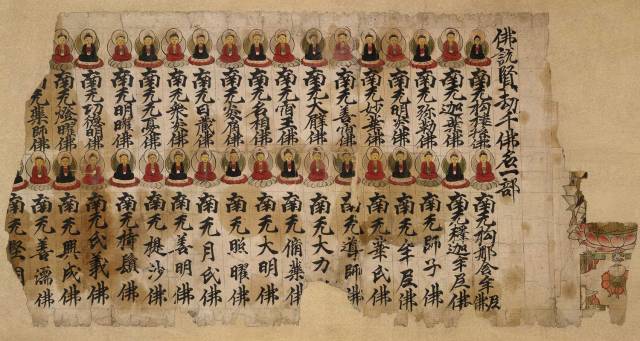 佛說賢劫千佛名一部
南无拘樓孫佛
南无拘那含牟尼佛
南无迦葉佛
南无釋迦牟尼佛
南无弥勒佛
南无師子佛
南无明炎佛
南无牟尼佛
南无妙華佛
南无華氏佛
南无善宿佛
南无導師佛
南无大臂佛
南无大力
南无宿王佛
南无脩藥佛
南无名相佛
南无大明佛
南无炎肩佛
南无照曜佛
南无日藏佛
南无月氏佛
南无衆炎佛
南无善明佛
南无无憂佛
南无提沙佛
南无明曜佛
南无持鬘佛
南无功德明佛
南无氏義佛
南无燈曜佛
南无興盛佛
无藥師佛
南无善濡佛
南无堅明